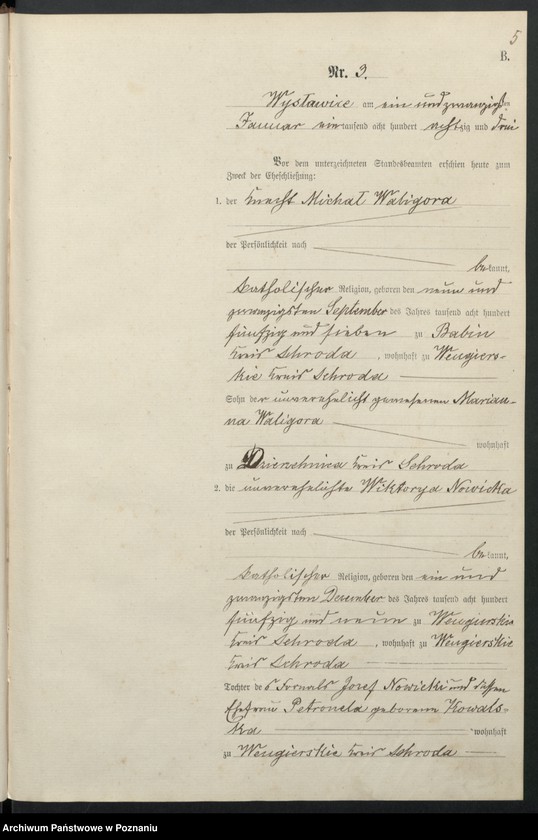 5
B.
Nr. 3.
Wysławice am ein und zwanzigsten
Januar eintausend acht hundert achtzig und drei
Vor dem unterzeichneten Standesbeamten erschien heute zum
Zweck der Eheschließung:
1. der Knecht Michał Waligora
der Persönlichkeit nach
bekannt,
katholischer Religion, geboren den neun und
zwanzigsten September des Jahres tausend acht hundert
fünfzig und sieben zu Babin
Kreis Schroda, wohnhaft zu Wengiers-
kie Kreis Schroda
Sohn der unverehelicht gewesenen Marian-
na Waligora
wohnhaft
zu Dzierzchnica Kreis Schroda
2. die unverehelichte Wiktorya Nowicka
der Persönlichkeit nach
bekannt,
katholischer Religion, geboren den ein und
zwanzigsten December des Jahres tausend acht hundert
fünfzig und neun zu Wengierskie
Kreis Schroda, wohnhaft zu Wengierskie
Kreis Schroda
Tochter des Fornals Jozef Nowicki und dessen
Ehefrau Petronela geborene Kowals-
ka wohnhaft
zu Wengierskie Kreis Schroda
Archiwum Państwowe w Poznaniu